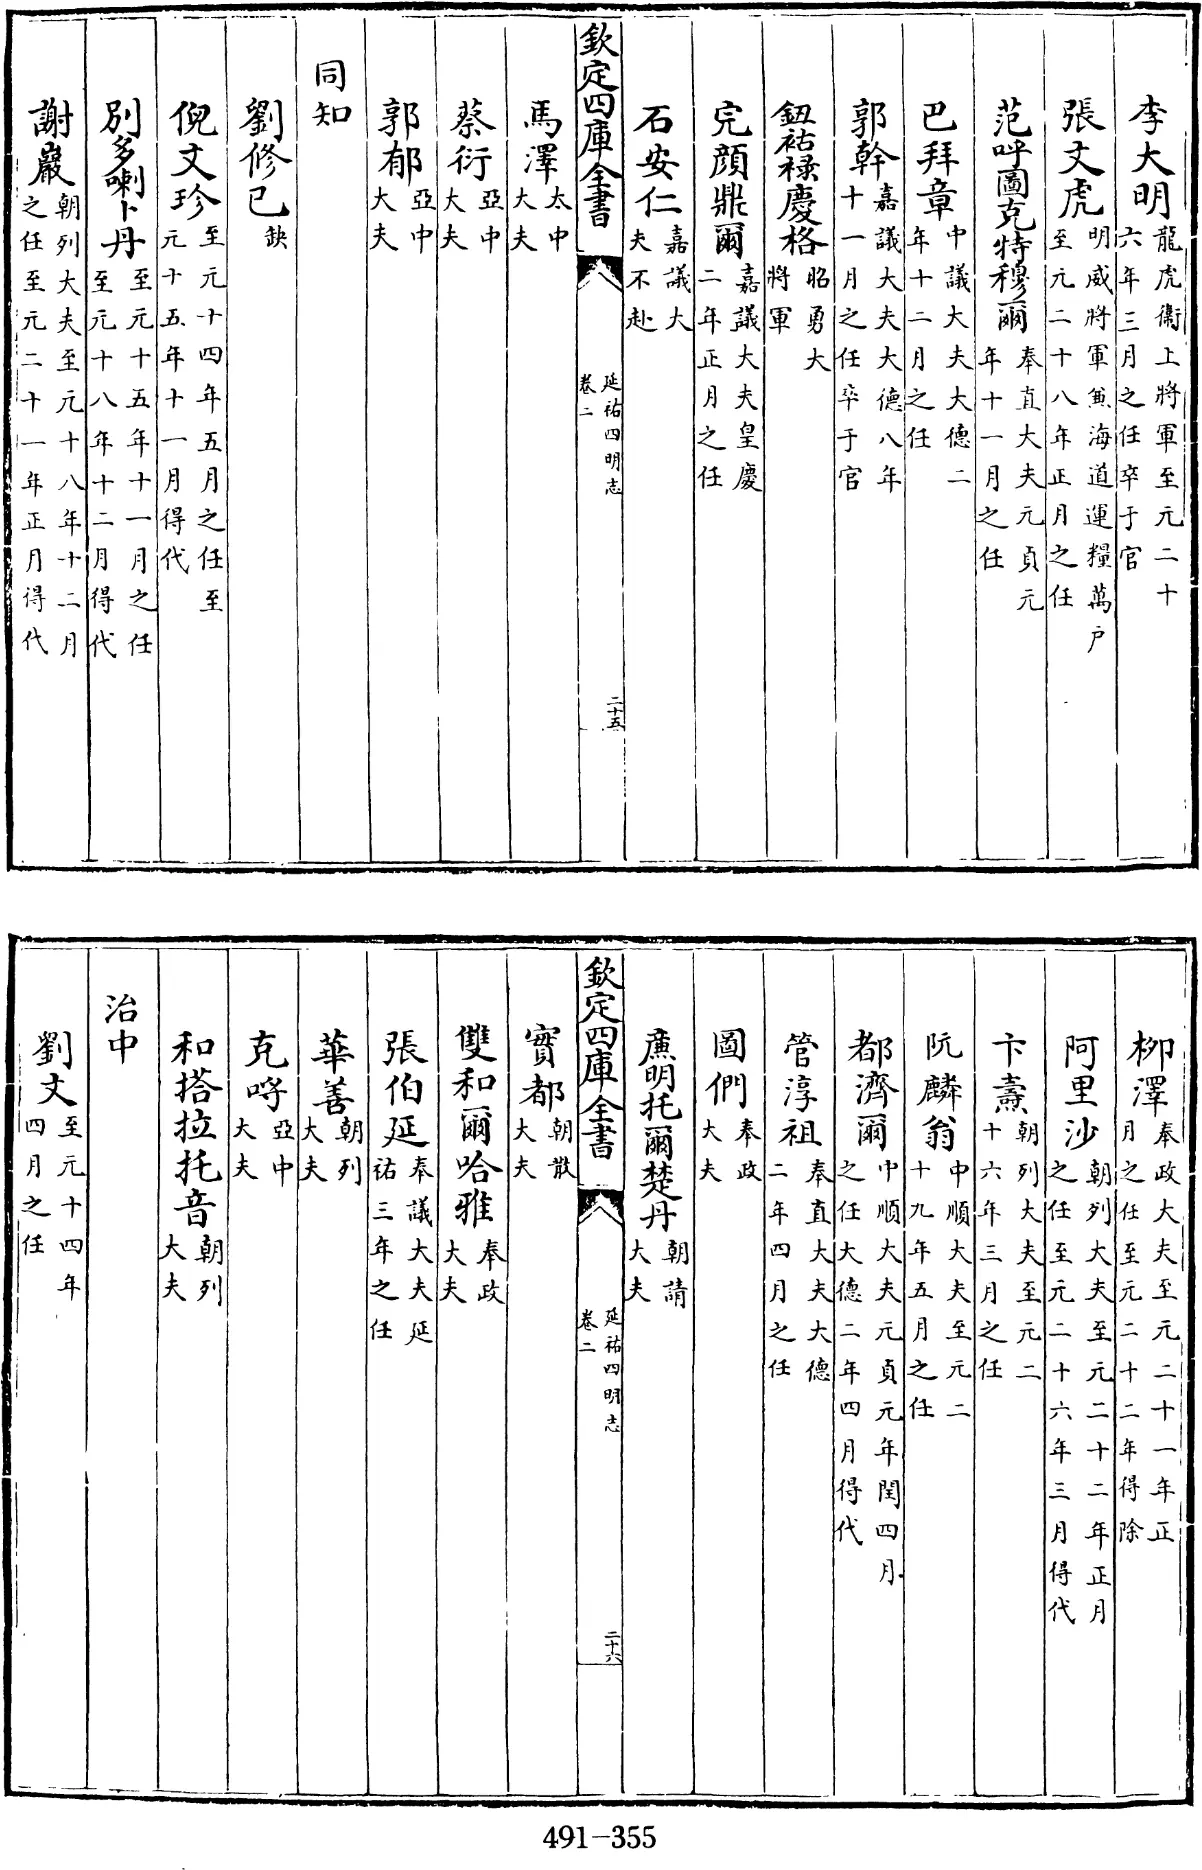 李大明龍虎衞上將軍至元二十六年三月之任卒于官
張文虎明威將軍兼海道運糧萬户至元二十八年正月之任
范呼圖克特穆爾奉直大夫元貞元年十一月之任
巴拜章中議大夫大德二年十二月之任
郭幹嘉議大夫大德八年十一月之任卒于官
鈕祜祿慶格昭勇大將軍
完顏鼎爾嘉議大夫皇慶二年正月之任
石安仁嘉議大夫不赴
欽定四庫全書 延祐四明志卷二 二十五
馬澤太中大夫
蔡衍亞中大夫
郭郁亞中大夫
同知
劉修已缺
倪文珍至元十四年五月之任至元十五年十一月得代
別多喇卜丹至元十五年十一月之任至元十八年十二月得代
謝巖朝列大夫至元十八年十二月之任至元二十一年正月得代
柳澤奉政大夫至元二十一年正月之任至元二十二年得除
阿里沙朝列大夫至元二十二年正月之任至元二十六年三月得代
卞燾朝列大夫至元二十六年三月之任
阮麟翁中順大夫至元二十九年五月之任
都濟爾中順大夫元貞元年閏四月之任大德二年四月得代
管淳祖奉直大夫大德二年四月之任
圖們奉政大夫
廉明托爾楚丹朝請大夫
欽定四庫全書 延祐四明志卷二 二十六
實都朝散大夫
雙和爾哈雅奉政大夫
張伯延奉議大夫延祐三年之任
華善朝列大夫
克呼亞中大夫
和塔拉托音朝列大夫
治中
劉文至元十四年四月之任
491-355